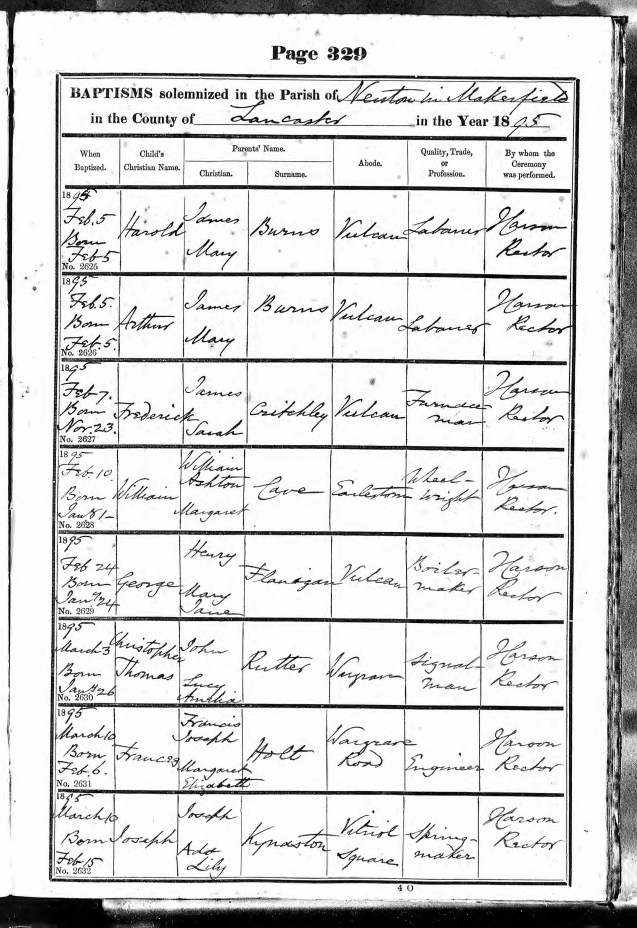 Page 329
BAPTISMS solemnized in the Parish of Newton in Makerfield
in the County of Lancaster in the Year 1895
When Baptized. Child's Christian Name. Parents' Name. Christian. Surname. Abode. Quality, Trade, or Profession. By whom the Ceremony was performed.
1895
Feb. 5 Harold James Burns Vulcan Labourer Rector
Born Mary
Feb 5
No. 2625
1895
Feb. 5. Arthur James Burns Vulcan Labourer Rector
Born Mary
Feb. 5.
No. 2626
1895
Feb 7. Frederick James Critchley Vulcan Furnace man Rector
Born Sarah
Nov. 23.
No. 2627
1895
Feb. 10 William William Ashton Cave Earlestown Wheel-wright Rector.
Born Margaret
No. 2628
1895
Feb 24 George Henry Flanigan Vulcan Boiler-maker Rector
Born Mary Jane
Jany 24
No. 2629
1895
March 3 Christopher Thomas John Rutter Wargrave Signal-man Rector
Born Lucy Amelia
Jany 26
No. 2630
1895
March 10 Frances Francis Joseph Holt Wargrave Road Engineer Rector
Born Margaret Elizabeth
Feb. 6.
No. 2631
1895
March 10 Joseph Joseph Kynaston Vitriol Square Spring-maker Rector
Born Ada Lily
Feb 15
No. 2632
4 O